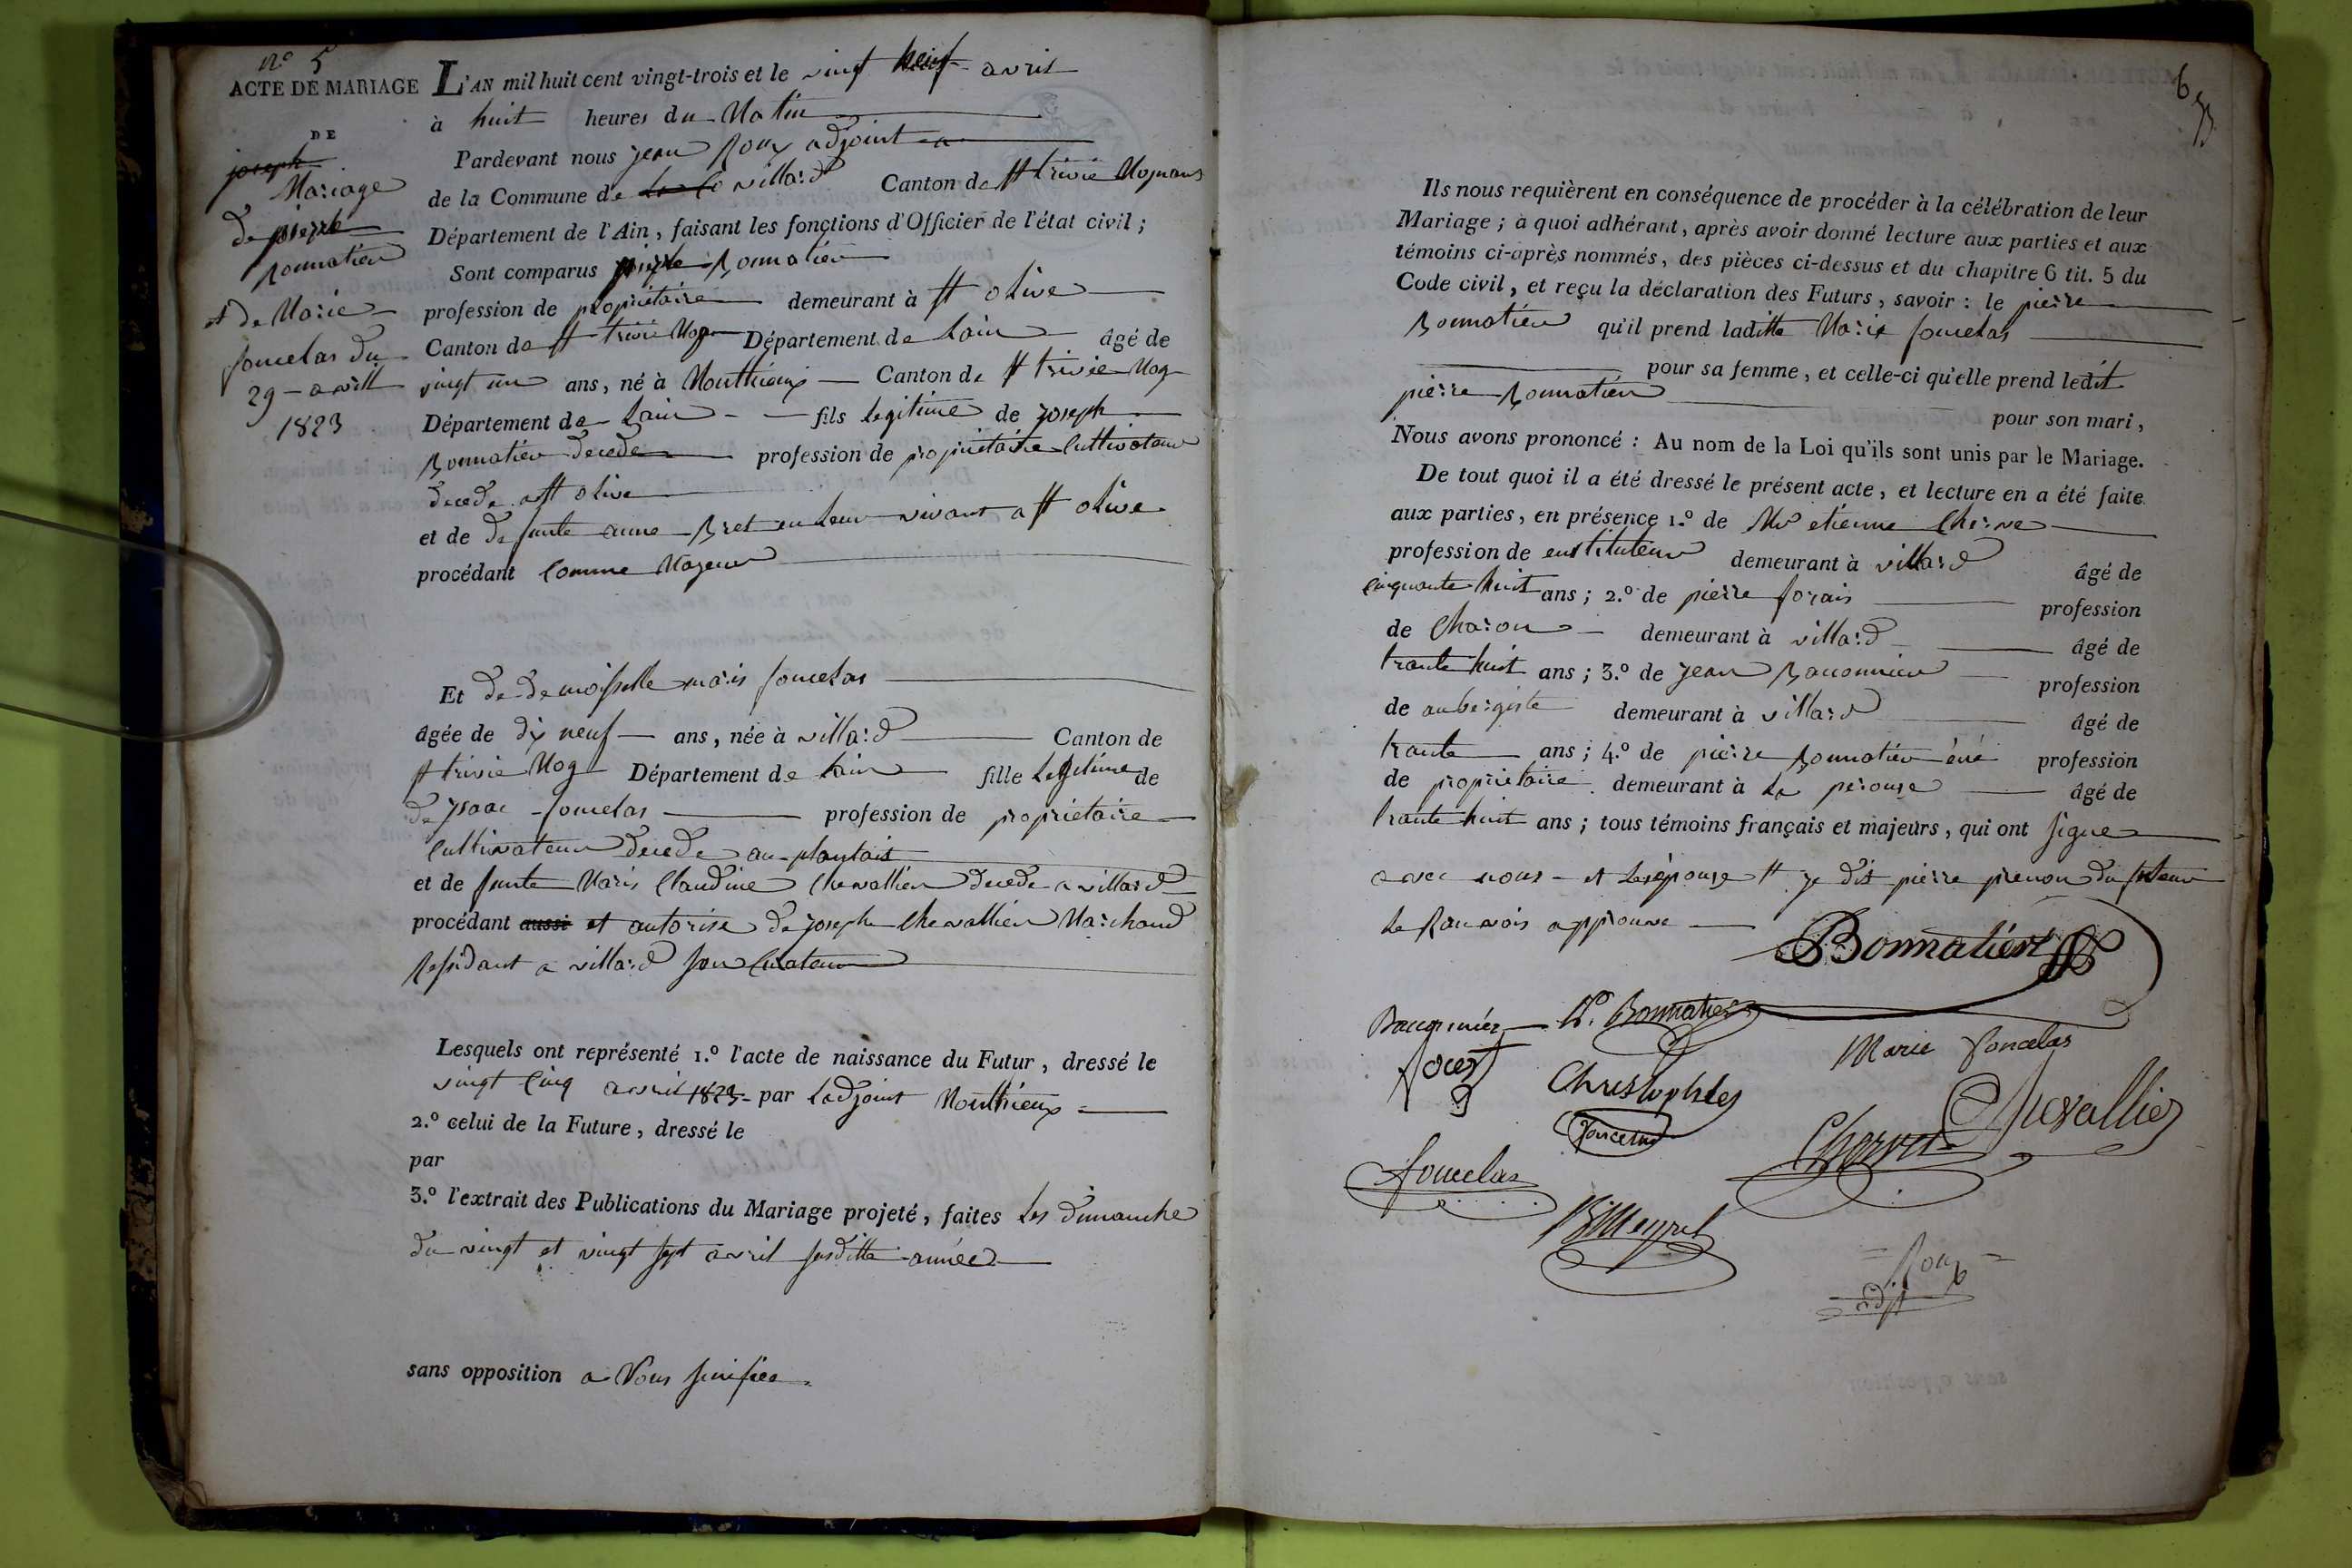 n° 5
ACTE DE MARIAGE
DE
joseph
Mariage
de pierre
Bonnatier
et de Marie
foncelas du
29 - avill
1823
L'AN mil huit cent vingt-trois et le vingt neuf avril
à huit heures du Matin
Pardevant nous jean Roux adjoint
de la Commune de villard Canton de st trivie Mognans
Département de l'Ain, faisant les fonctions d'Officier de l'état civil;
Sont comparus pierre Bonnatier
profession de propriétaire demeurant à st olive
Canton de st trivie Mog Département de lain âgé de
vingt un ans, né à Monthieux Canton de st trivie Mog
Département de lain fils legitime de joseph
Bonnatier decede profession de propriétaire Cultivateur
decede a st olive
et de defunte anne Bret en leur vivant a st olive
procédant Comme Mageur
Et de demoisselle marie foncelas
âgée de dix neuf ans, née à villard Canton de
st trivie Mog Département de lain fille Legitime de
de ysaac foncelas profession de propriétaire
Cultivateur decede au plantait
et de funte Marie Claudine Chevallier decede a villard
procédant aussi et autorise de joseph Chevallier Marchand
Residant a villard son Curateur
Lesquels ont représenté 1.º l'acte de naissance du Futur, dressé le
vingt Cinq avril 1823 par Ladjoint Monthieux
2.º celui de la Future, dressé le
par
3.º l'extrait des Publications du Mariage projeté, faites Les dimanche
du vingt et vingt sept avril susditte année
sans opposition a Nous
6
Ils nous requièrent en conséquence de procéder à la célébration de leur
Mariage; à quoi adhérant, après avoir donné lecture aux parties et aux
témoins ci-après nommés, des pièces ci-dessus et du chapitre 6 tit. 5 du
Code civil, et reçu la déclaration des Futurs, savoir: le pierre
Bonnatier qu'il prend laditte Marie foncelas
pour sa femme, et celle-ci qu'elle prend ledit
pierre Bonnatier
pour son mari,
Nous avons prononcé: Au nom de la Loi qu'ils sont unis par le Mariage.
De tout quoi il a été dressé le présent acte, et lecture en a été faite
aux parties, en présence 1.º de Mr etienne Cherve
profession de enstituteur demeurant à villard âgé de
cinquante huit ans; 2.º de pierre forais profession
de Charon demeurant à villard âgé de
trante huit ans; 3.º de jean Baconnier profession
de aubergiste demeurant à villard âgé de
trante ans; 4.º de pierre Bonnatier éné profession
de propriétaire demeurant à La perouse âgé de
trante huit ans; tous témoins français et majeurs, qui ont signe
avec nous et Lesépouse je dit pierre prenon du futeur
le Ranvois approuve
Bonnatier
Baconnier P. Bonnatier
Marie Foncelas
Christophle
foncelas
Chevallier
Chervet
foncelas
Roux
adjt